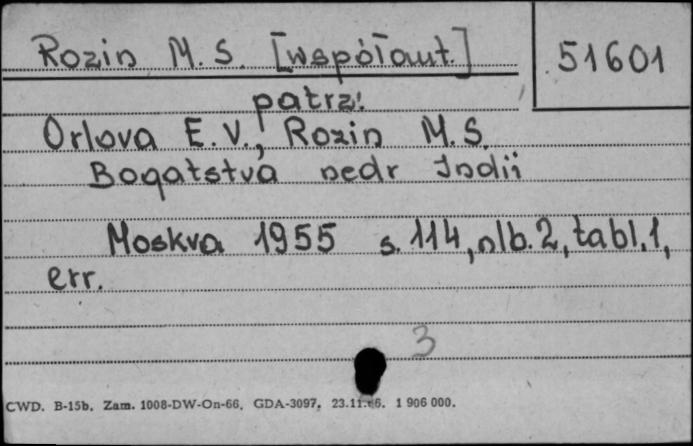 Rozin M. S. [współaut.]
51601
patrz:
Orlova E. V., Rozin M. S.
Bogatstva nedr Indii
Moskva 1955 s. 114, nlb. 2, tabl. 1,
err.
3
CWD. B-15b. Zam. 1008-DW-On-66. GDA-3097. 23.11.66. 1 906 000.